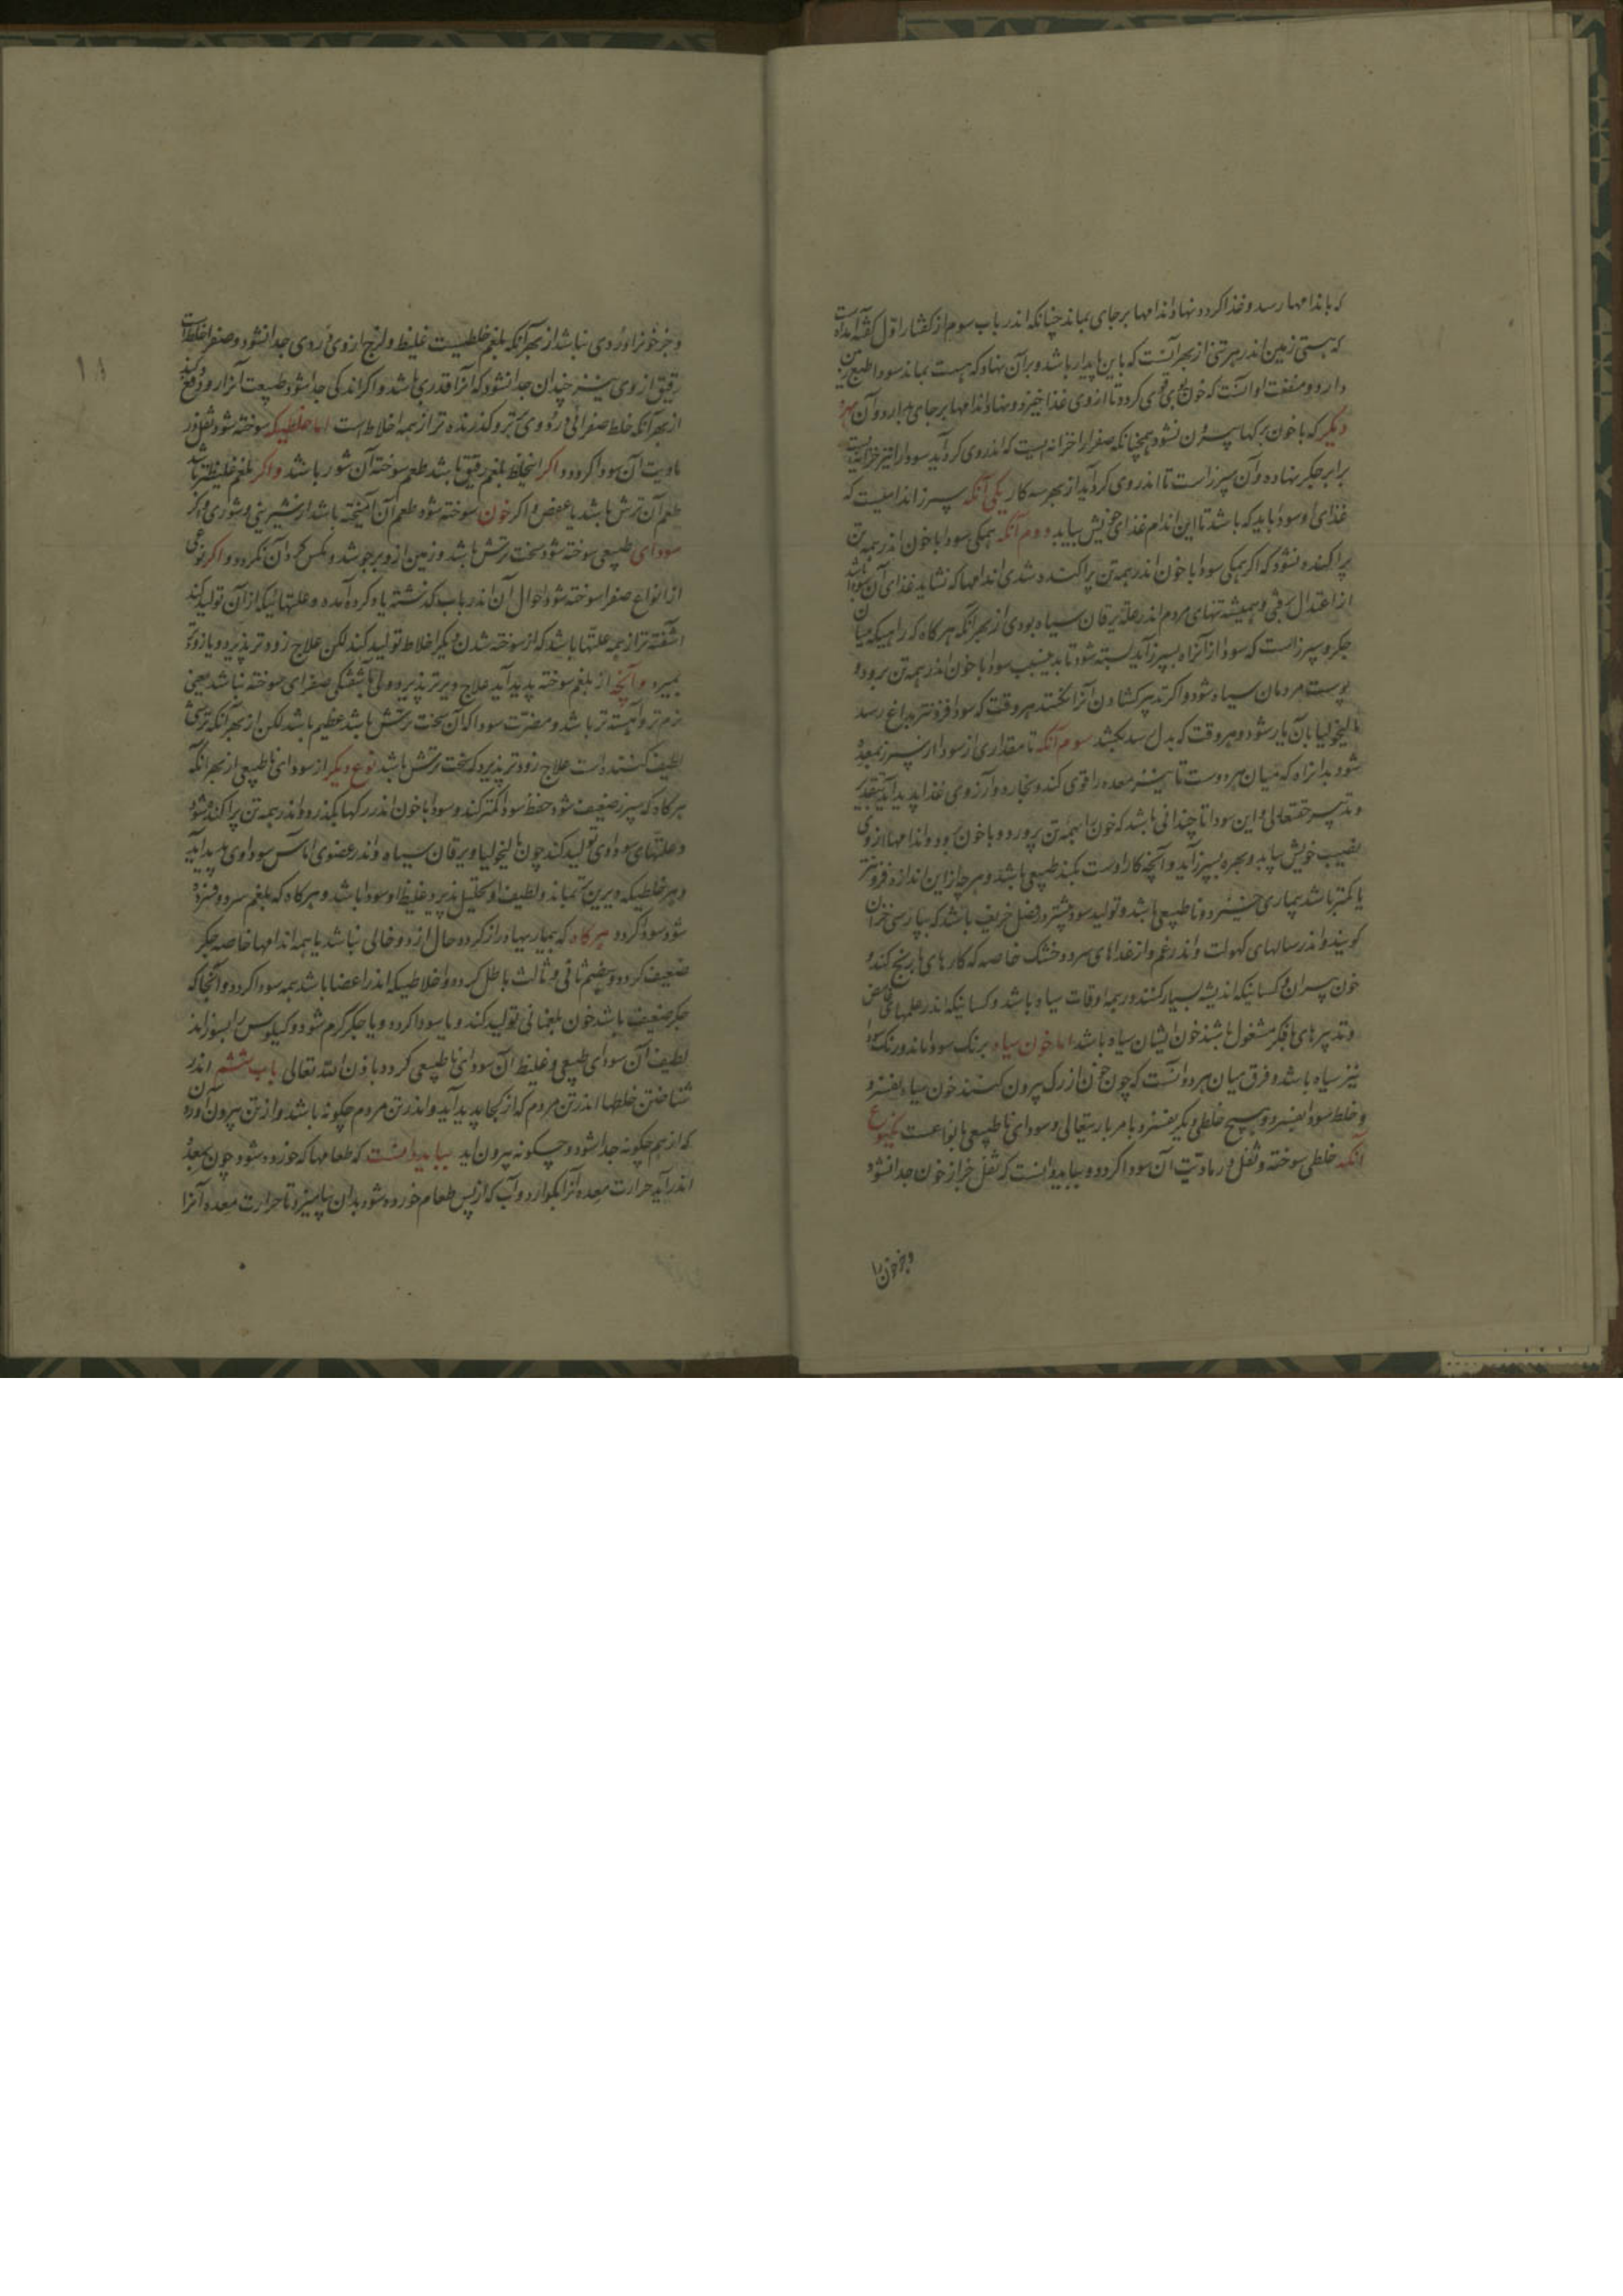 که باندامها رسد و غذا گردد نهاد اندامها بر جای بماند چنانکه اندر باب سوم از گفتار اول گفته آمده است
که هستی زمین اندر هر تنی از بهر آنست که باین پایدار باشد و بر آن نهاد که هست بماند سودا طبع زمین
دارد و منفعت او آنست که خون قوی گردد تا از وی غذا خیزد و نهاد اندامها بر جای بدارد و آن بهره
دیگر که با خون برگها بیرون نشود همچنانکه صفرا را خزانه ایست که اندر وی گرد آید سودا را نیز خزانه ایست
برابر جگر نهاده و آن سپرز است تا اندر وی گرد آید از بهر سه کار یکی آنکه سپرز اندامیست که
غذای او سودا باید که باشد تا این اندام غذای خویش بیابد دوم آنکه همگی سودا با خون اندر همه تن
پراکنده نشود که اگر همگی سودا با خون اندر همه تن پراکنده شدی اندامها که نشاید غذای آن سودا باشد
از اعتدال برفتی و همیشه تنهای مردم اندر علة یرقان سیاه بودی از بهر آنکه هر گاه که راهیکه میان
جگر و سپرز است که سودا از آن راه بسپرز آید بسته شود تا بدین سبب سودا با خون اندر همه تن برود و
پوست مردمان سیاه شود و اگر تدبیر گشادن آن نکنند هر وقت که سودا فزونتر بدماغ رسد
مالیخولیا بآن یار شود و هر وقت که بدل رسد بکشد سوم آنکه تا مقداری از سودا از سپرز بمعده
شود بدان راه که میان هر دوست تا نیز معده را قوی کند و بخارد و آرزوی غذا پدید آید بتقدیر
و تدبیر حقتعالی و این سودا تا چندانی باشد که خون را بهمه تن پرورد و با خون بود و اندامها از وی
نصیب خویش بیابد و بهره بسپرز آید و آنچه کار اوست بکند طبیعی باشد و هر چه از این اندازه فزونتر
یا کمتر باشد بیماری خیزد و ناطبیعی باشد و تولید سودا بیشتر در فصل خریف باشد که بپارسی خزان
گویند و اندر سالهای کهولت و اندر غم و از غذاهای سرد و خشک خاصه که کارهای با رنج کند و
خون پیران و کسانیکه اندیشه بسیار کنند در همه اوقات سیاه باشد و کسانیکه اندر علمهای غامض
و تدبیرهای با فکر مشغول باشند خون ایشان سیاه باشد اما خون سیاه برنگ سودا ماند و رنگ سودا
نیز سیاه باشد و فرق میان هر دو آنست که چون خون از رگ بیرون کنند خون سیاه بفسرد
و خلط سودا نفسرد و هیچ خلطی دیگر نفسرد بامر باریتعالی و سودای ناطبیعی بانواعست یکنوع
آنکه خلطی سوخته و ثفل و رمادیت آن سودا گردد و بباید دانست که ثفل جز از خون جدا نشود
و جز خون را
و جز خون را دردی نباشد از بهر آنکه بلغم خلطیست غلیظ و لزج از وی دردی جدا نشود و صفرا خلطیست
رقیق از وی نیز چندان جدا نشود که آنرا قدری باشد و اگر اندکی جدا شود طبیعت آنرا زود دفع کند
از بهر آنکه خلط صفرائی درّو وی تیزتر و گذرنده تر از همه اخلاط است اما خلطیکه سوخته شود ثفل و ر
مادیت آن سودا گردد و اگر این خلط بلغم رقیق باشد طعم سوخته آن شور باشد و اگر بلغم غلیظ تر باشد
طعم آن ترش باشد یا عفص و اگر خون سوخته شود طعم آن آمیخته باشد از شیرینی و شوری و اگر
سودای طبیعی سوخته شود سخت ترش باشد و زمین از و برجوشد و مگس گرد آن نگردد و اگر نوعی
از انواع صفرا سوخته شود احوال آن اندر باب گذشته یاد کرده آمده و علتهائیکه از آن تولید کند
آشفته تر از همه علتها باشد که از سوخته شدن دیگر اخلاط تولید کند لکن علاج زودتر پذیرد و یا زودتر
بمیرد و آنچه از بلغم سوخته پدید آید علاج دیرتر پذیرد ولی بآشفتگی صفرای سوخته نباشد یعنی
نرم تر و آهسته تر باشد و مضرت سودا که آن سخت ترش باشد عظیم باشد لکن از بهر آنکه ترشی
لطیف کننده است علاج زودتر پذیرد که سخت ترش باشد نوع دیگر از سودای ناطبیعی از بهر آنکه
هر گاه که سپرز ضعیف شود حفظ سودا کمتر کند و سودا با خون اندر رگها بگذرد و اندر همه تن پراکنده شود
و علتهای سوداوی تولید کند چون مالیخولیا و یرقان سیاه و اندر عضوی آماس سوداوی پدید آید
و هر خلطیکه دیر بن تن بماند و لطیف او تحلیل پذیرد و غلیظ او سودا باشد و هر گاه که بلغم سرد و فسرده
شود سودا گردد هر گاه که بیماریها دراز گردد حال از دو خالی نباشد یا همه اندامها خاصه جگر
ضعیف گردد و هضم ثانی و ثالث باطل گردد و اخلاطیکه اندر اعضا باشد همه سودا گردد و آنجا که
جگر ضعیف باشد خون بلغمانی تولید کند و یا سودا گردد و یا جگر گرم شود و کیلوس را بسوزاند
لطیف آن سودای طبیعی و غلیظ آن سودای ناطبیعی گردد باذن الله تعالی باب ششم اندر
شناختن خلطها اندر تن مردم که از کجا پدید آید و اندر تن مردم چگونه باشد و از تن بیرون آوردن
که از هم چگونه جدا شود و چگونه بیرون آید بباید دانست که طعامها که خورده شود چون بمعده
اندر آید حرارت معده آنرا بگوارد و آب که از پس طعام خورده شود بدان بیامیزد تا حرارت معده آنرا